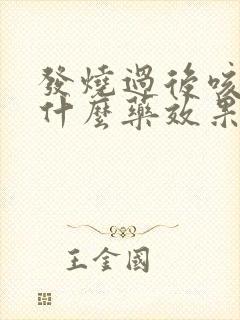 發燒過後咳
什麼藥效果
王金國